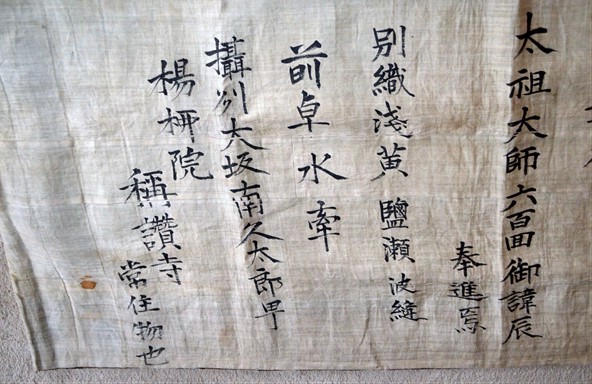 太祖大師六百囬御諱辰
奉進焉
別織淺黄鹽瀬波縫
前卓水牽
攝刕大坂南久太郎甼
楊柳院
稱讚寺
常住物也